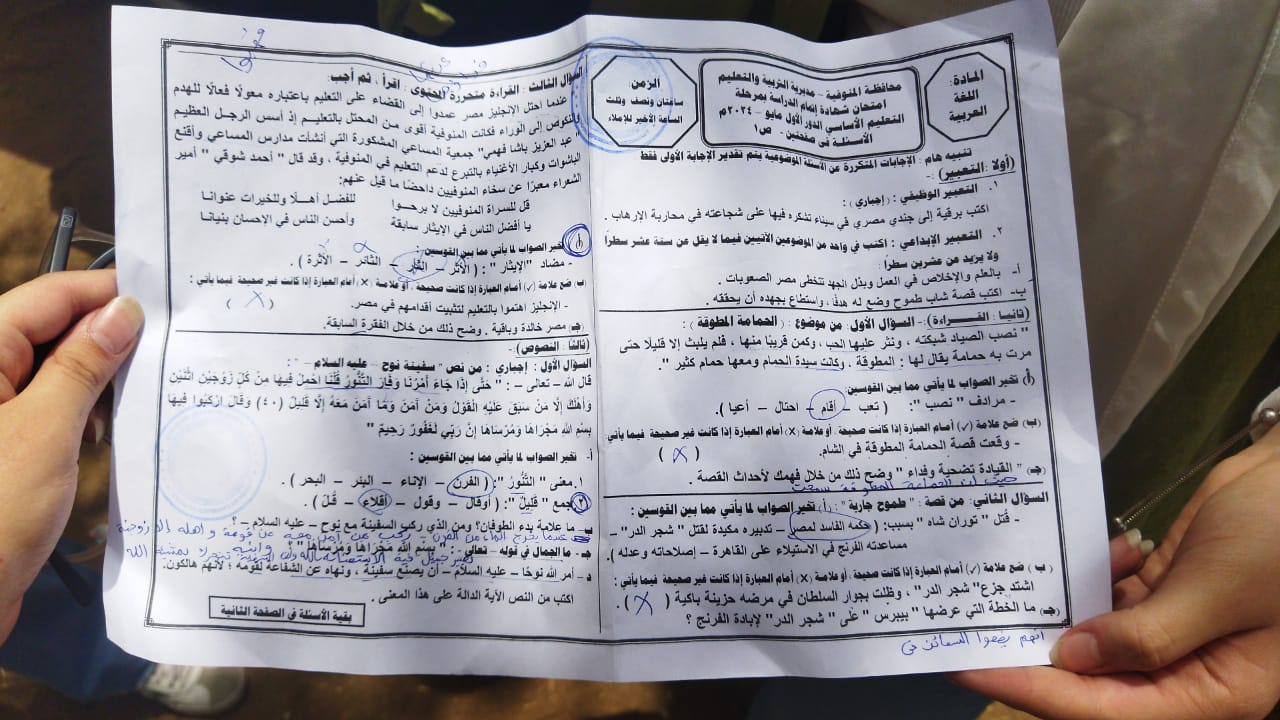 المادة:
اللغة
العربية
محافظة المنوفية - مديرية التربية والتعليم
امتحان شهادة إتمام الدراسة بمرحلة
التعليم الأساسي الدور الأول مايو – ٢٠٢٤م
الأسئلة في صفحتين - ص١
الزمن:
ساعتان ونصف وثلث
الساعة الأخير للإملاء
تنبيه هام : الإجابات المتكررة عن الأسئلة الموضوعية يتم تقدير الإجابة الأولى فقط
(أولا : التعبير) :-
١. التعبير الوظيفي : (إجباري) :
اكتب برقية إلى جندي مصري في سيناء تشكره فيها على شجاعته في محاربة الإرهاب .
٢. التعبير الإبداعي : اكتب في واحد من الموضوعين الآتيين فيما لا يقل عن ستة عشر سطرًا
ولا يزيد عن عشرين سطرًا :
أ- بالعلم والإخلاص في العمل وبذل الجهد تتخطى مصر الصعوبات .
ب- اكتب قصة شاب طموح وضع له هدفًا ، واستطاع بجهده أن يحققه .
(ثانيا : القــــراءة) :- السؤال الأول: من موضوع : (الحمامة المطوقة) :
" نصب الصياد شبكته ، ونثر عليها الحب ، وكمن قريبًا منها ، فلم يلبث إلا قليلًا حتى
مرت به حمامة يقال لها : المطوقة ، وكانت سيدة الحمام ومعها حمام كثير ".
(أ) تخير الصواب لما يأتي مما بين القوسين:
- مرادف " نصب ": ( تعب – أقام – احتال – أعيا ).
(ب) ضع علامة (✓) أمام العبارة إذا كانت صحيحة ، أو علامة (×) أمام العبارة إذا كانت غير صحيحة فيما يأتي
- وقعت قصة الحمامة المطوقة في الشام. ( × )
(جـ) " القيادة تضحية وفداء " وضح ذلك من خلال فهمك لأحداث القصة .
السؤال الثاني: من قصة : " طموح جارية " : (أ) تخير الصواب لما يأتي مما بين القوسين :
- قُتل " توران شاه " بسبب: ( حكمه الفاسد لمصر – تدبيره مكيدة لقتل " شجر الدر" –
مساعدته الفرنج في الاستيلاء على القاهرة – إصلاحاته وعدله ).
( ب ) ضع علامة (✓) أمام العبارة إذا كانت صحيحة ، أو علامة (×) أمام العبارة إذا كانت غير صحيحة فيما يأتي :
اشتد جزع" شجر الدر" ، وظلت بجوار السلطان في مرضه حزينة باكية ( × ) .
(جـ) ما الخطة التي عرضها " بيبرس" على " شجر الدر" لإبادة الفرنج ؟
السؤال الثالث : القراءة متحررة المحتوى : اقرأ ، ثم أجب :
عندما احتل الإنجليز مصر عمدوا إلى القضاء على التعليم باعتباره معولًا فعالًا للهدم
والنكوص إلى الوراء فكانت المنوفية أقوى من المحتل بالتعليم إذ أسس الرجل العظيم
"عبد العزيز باشا فهمي" جمعية المساعي المشكورة التي أنشأت مدارس المساعي وأقنع
الباشوات وكبار الأغنياء بالتبرع لدعم التعليم في المنوفية ، وقد قال " أحمد شوقي " أمير
الشعراء معبرًا عن سخاء المنوفيين داحضًا ما قيل عنهم:
قل للسراة المنوفيين لا برحـــوا للفضل أهـلًا وللخيرات عنوانا
يا أفضل الناس في الإيثار سابقة وأحسن الناس في الإحسان بنيانا
(أ) تخير الصواب لما يأتي مما بين القوسين :
- مضاد "الإيثار" : ( الأثر – الثأر – الثائر – الأثرة ) .
(ب) ضع علامة (✓) أمام العبارة إذا كانت صحيحة ، أو علامة (×) أمام العبارة إذا كانت غير صحيحة فيما يأتي :
- الإنجليز اهتموا بالتعليم لتثبيت أقدامهم في مصر. ( × )
(جـ) مصر خالدة وباقية . وضح ذلك من خلال الفقرة السابقة.
(ثالثا : النصوص) :-
السؤال الأول : إجباري : من نص " سفينة نوح – عليه السلام – " :
قال الله – تعالى – : " حَتَّى إِذَا جَاءَ أَمْرُنَا وَفَارَ التَّنُّورُ قُلْنَا احْمِلْ فِيهَا مِنْ كُلٍّ زَوْجَيْنِ اثْنَيْنِ
وَأَهْلَكَ إِلَّا مَنْ سَبَقَ عَلَيْهِ الْقَوْلُ وَمَنْ آمَنَ وَمَا آمَنَ مَعَهُ إِلَّا قَلِيلٌ (٤٠) وَقَالَ ارْكَبُوا فِيهَا
بِسْمِ اللَّهِ مَجْرَاهَا وَمُرْسَاهَا إِنَّ رَبِّي لَغَفُورٌ رَحِيمٌ "
أ- تخير الصواب لما يأتي مما بين القوسين :
١. معنى " التَّنُّورُ ": ( الفرن – الإناء – البئر – البحر ) .
٢. جمع " قَلِيلٌ ": ( أوقال – وقول – أقلاء – قُلل ) .
ب- ما علامة بدء الطوفان؟ ومن الذي ركب السفينة مع نوح – عليه السلام – ؟
جـ- ما الجمال في قوله – تعالى- : " بِسْمِ اللَّهِ مَجْرَاهَا وَمُرْسَاهَا " ؟
د- أمر الله نوحًا – عليه السلام – أن يصنع سفينة ، ونهاه عن الشفاعة لقومه ؛ لأنهم هالكون.
اكتب من النص الآية الدالة على هذا المعنى .
بقية الأسئلة في الصفحة الثانية